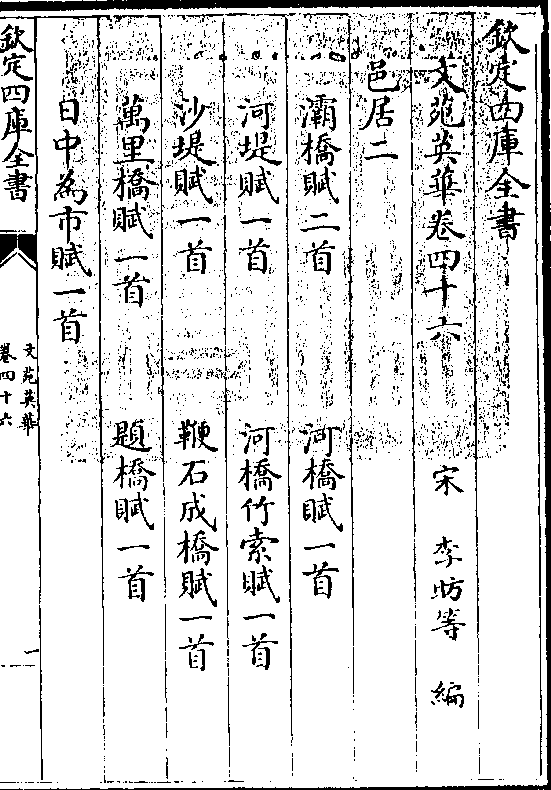 欽定四庫全書
文苑英華卷四十六
宋 李昉等 編
邑居二
灞橋賦二首 河橋賦一首
河堤賦一首 河橋竹索賦一首
沙堤賦一首 鞭石成橋賦一首
萬里橋賦一首 題橋賦一首
日中為市賦一首
欽定四庫全書
文苑英華
卷四十六
一